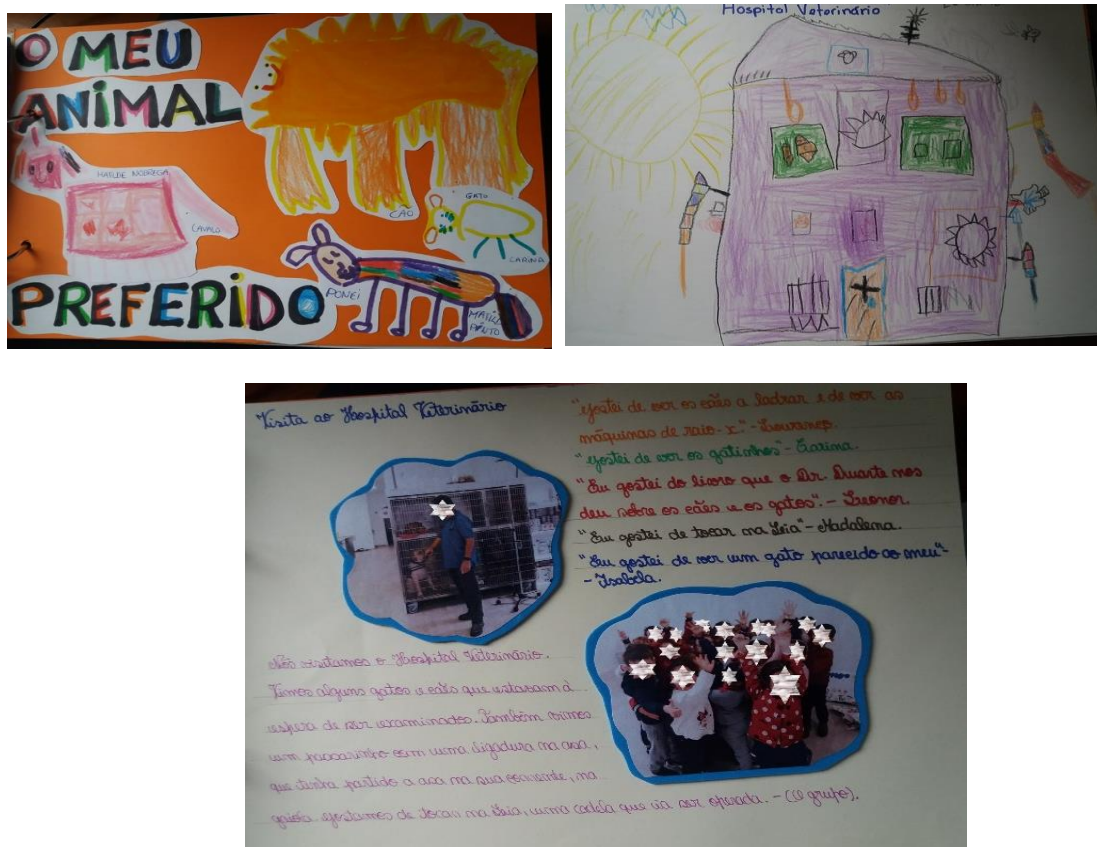 O MEU
ANIMAL
MATILDE NOBREGA
CAVALO
CÃO
GATO
CARINA
PONEI
MATILDE
PINTO
PREFERIDO
Hospital Veterinário
Visita ao Hospital Veterinário
"Gostei de ver os cães a ladrar e de ver as
máquinas de raio-x" - Lourenço.
"Gostei de ver os gatinhos" - Carina.
"Eu gostei do livro que o Dr. Duarte nos
deu sobre os cães e os gatos". - Leonor
"Eu gostei de tocar na Leia" - Madalena.
"Eu gostei de ver um gato parecido ao meu"-
- Isabela.
Nós visitamos o Hospital Veterinário.
Vimos alguns gatos e cães que estavam à
espera de ser examinados. Também vimos
um passarinho com uma ligadura na asa,
que tinha partido a asa na sua, na
gaiola. Gostamos de tocar na Leia, uma cadela que ia ser operada. - (O grupo).